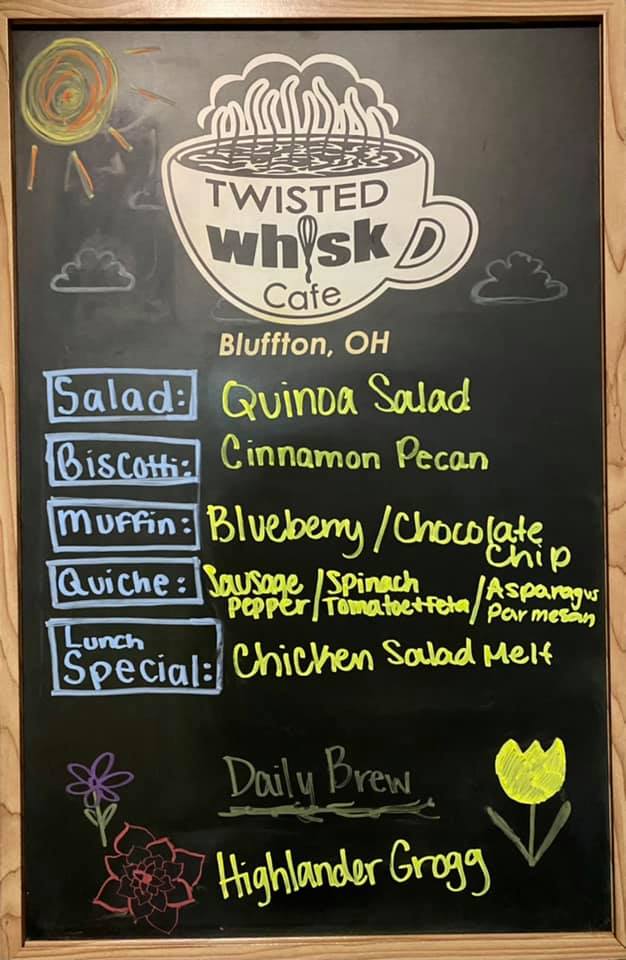 TWISTED
whisk
Cafe
Bluffton, OH
Salad: Quinoa Salad
Biscotti: Cinnamon Pecan
Muffin: Blueberry / Chocolate
Chip
Quiche: Sausage / Spinach / Asparagus
Pepper / Tomatoe + Feta / Parmesan
Lunch
Special: Chicken Salad Melt
Daily Brew
Highlander Grogg